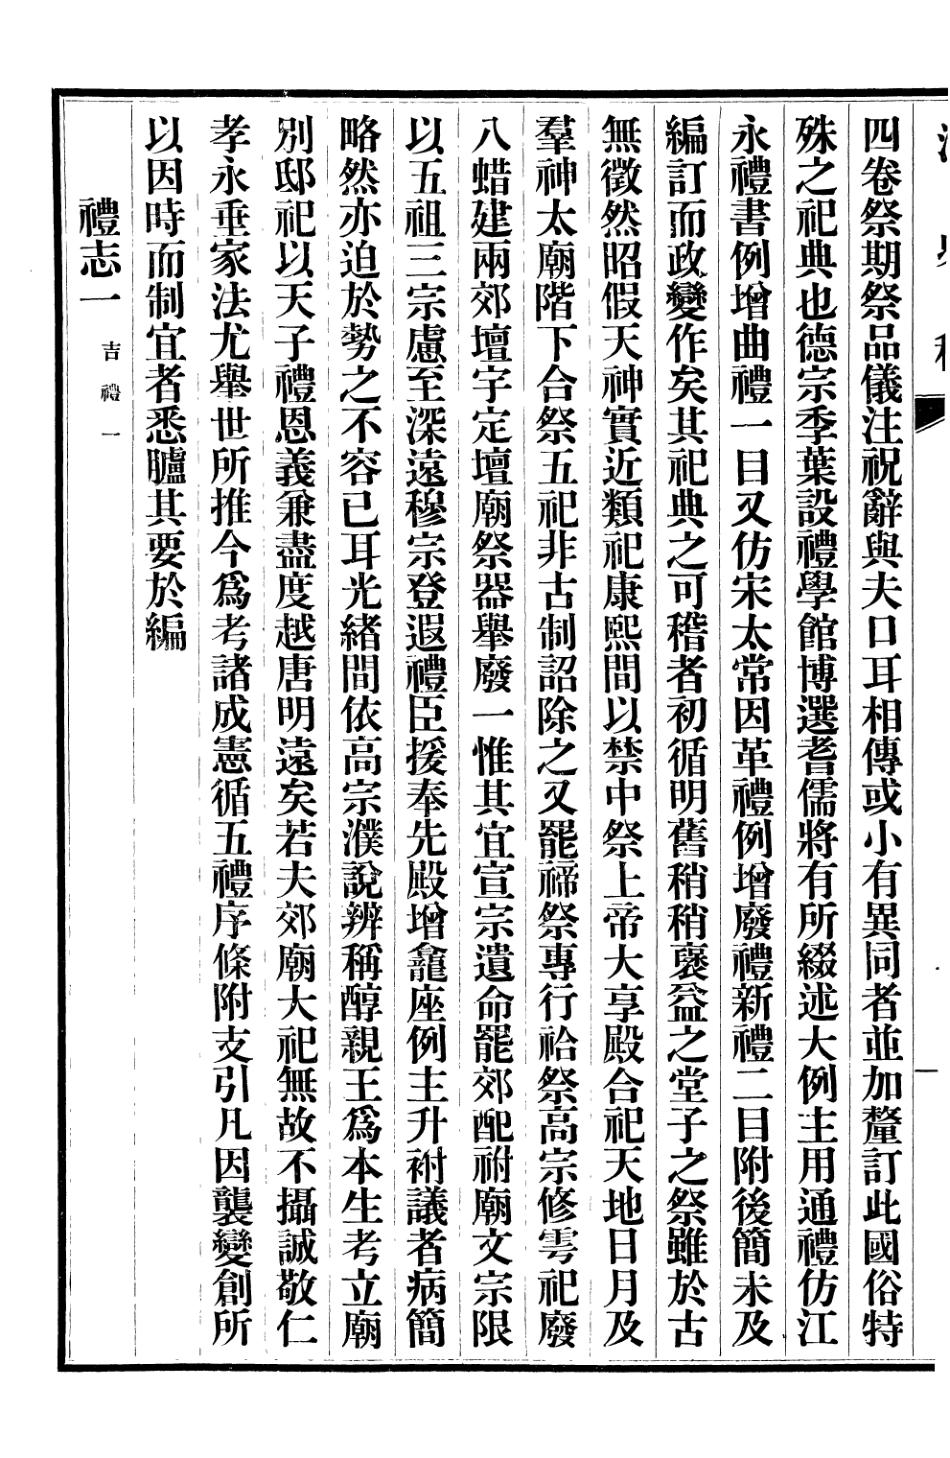 四卷祭期祭品儀注祝辭與夫口耳相傳或小有異同者並加釐訂此國俗特
殊之祀典也德宗季葉設禮學館博選耆儒將有所綴述大例主用通禮仿江
永禮書例增曲禮一目又仿宋太常因革禮例增廢禮新禮二目附後簡未及
編訂而政變作矣其祀典之可稽者初循明舊稍稍褒益之堂子之祭雖於古
無徵然昭假天神實近類祀康熙間以禁中祭上帝大享殿合祀天地日月及
羣神太廟階下合祭五祀非古制詔除之又罷禘祭專行祫祭高宗修雩祀廢
八蜡建兩郊壇宇定壇廟祭器舉廢一惟其宜宣宗遺命罷郊配祔廟文宗限
以五祖三宗慮至深遠穆宗登遐禮臣援奉先殿增龕座例主升祔議者病簡
略然亦迫於勢之不容已耳光緒間依高宗濮說辨稱醇親王爲本生考立廟
別邸祀以天子禮恩義兼盡度越唐明遠矣若夫郊廟大祀無故不攝誠敬仁
孝永垂家法尤舉世所推今爲考諸成憲循五禮序條附支引凡因襲變創所
以因時而制宜者悉臚其要於編
禮志一 吉禮一